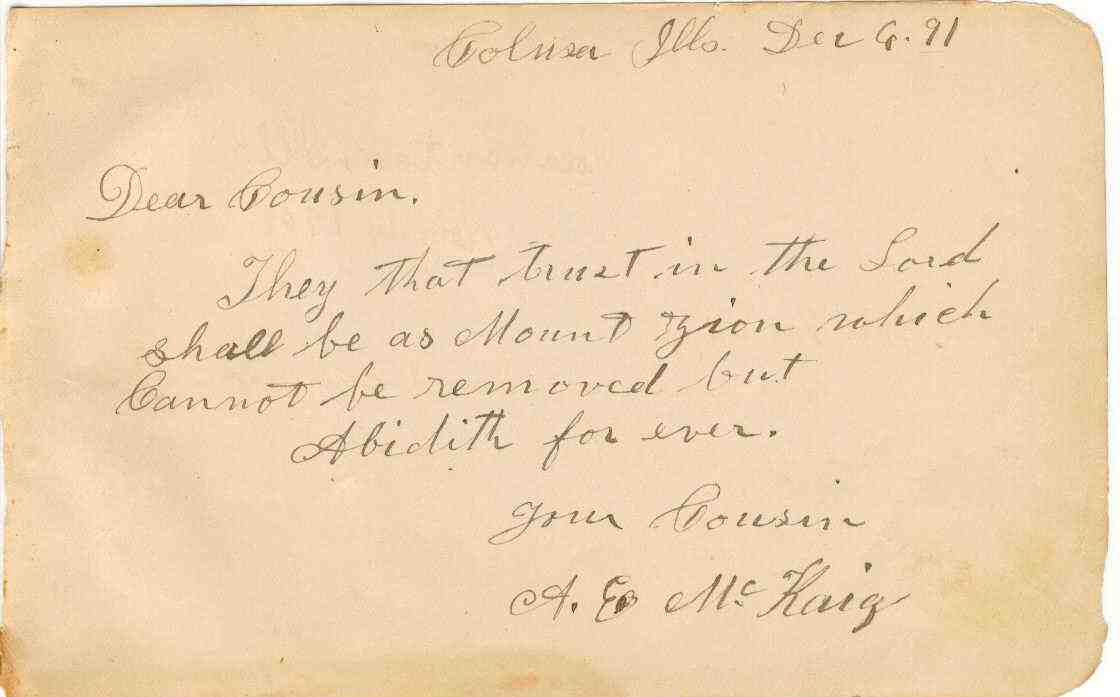 Colusa Ills. Dec 6. 91
Dear Cousin.
They that trust in the Lord
shall be as Mount Zion which
Cannot be removed but
Abidith for ever.
Your Cousin
A. E McKaig